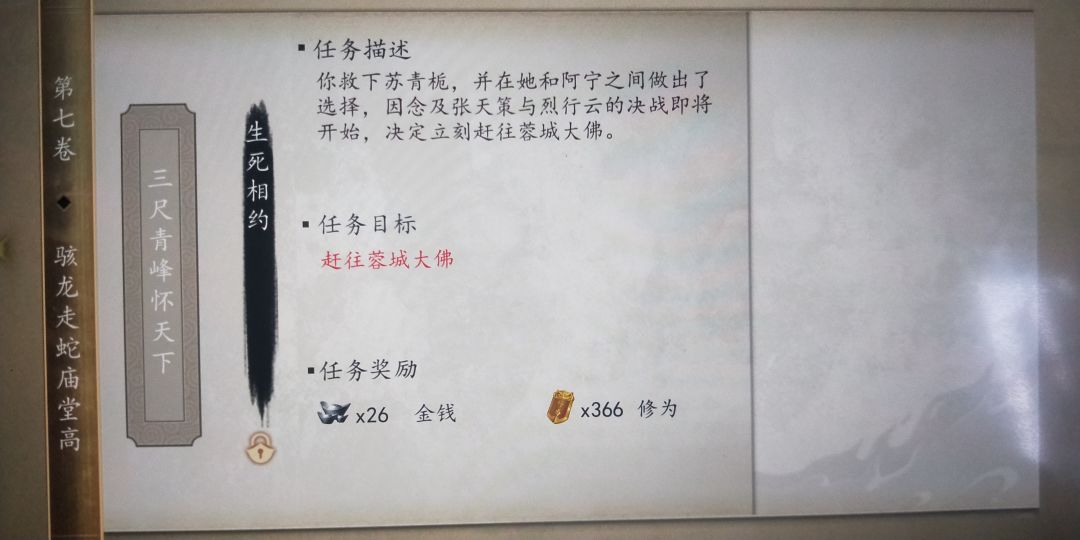 第七卷◆骇龙走蛇庙堂高
三尺青峰怀天下
生死相约
▪任务描述
你救下苏青栀，并在她和阿宁之间做出了
选择，因念及张天策与烈行云的决战即将
开始，决定立刻赶往蓉城大佛。
▪任务目标
赶往蓉城大佛
▪任务奖励
x26 金钱
x366 修为